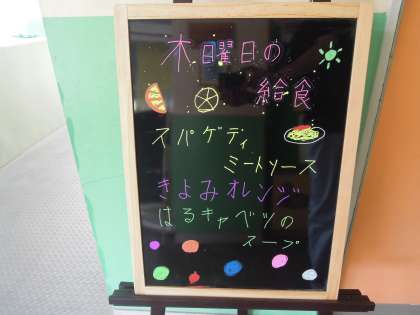 木曜日の
給食
スパゲティ
ミートソース
きよみオレンジ
はるキャベツの
スープ